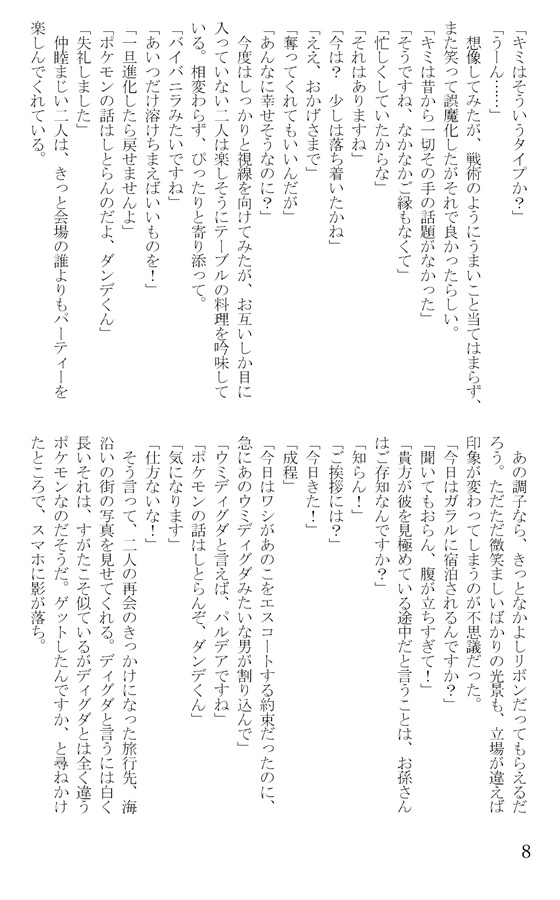 「キミはそういうタイプか?」
「うーん……」
　想像してみたが、戦術のようにうまいこと当てはまらず、
また笑って誤魔化したがそれで良かったらしい。
「キミは昔から一切その手の話題がなかった」
「そうですね、なかなかご縁もなくて」
「忙しくしていたからな」
「それはありますね」
「今は?　少しは落ち着いたかね」
「ええ、おかげさまで」
「奪ってくれてもいいんだが」
「あんなに幸せそうなのに?」
　今度はしっかりと視線を向けてみたが、お互いしか目に
入っていない二人は楽しそうにテーブルの料理を吟味して
いる。相変わらず、ぴったりと寄り添って。
「バイバニラみたいですね」
「あいつだけ溶けちまえばいいものを!」
「一旦進化したら戻せませんよ」
「ポケモンの話はしとらんのだよ、ダンデくん」
「失礼しました」
　仲睦まじい二人は、きっと会場の誰よりもパーティーを
楽しんでくれている。
　あの調子なら、きっとなかよしリボンだってもらえるだ
ろう。ただただ微笑ましいばかりの光景も、立場が違えば
印象が変わってしまうのが不思議だった。
「今日はガラルに宿泊されるんですか?」
「聞いてもおらん、腹が立ちすぎて!」
「貴方が彼を見極めている途中だと言うことは、お孫さん
はご存知なんですか?」
「知らん!」
「ご挨拶には?」
「今日きた!」
「成程」
「今日はワシがあのこをエスコートする約束だったのに、
急にあのウミディグダみたいな男が割り込んで」
「ウミディグダと言えば、パルデアですね」
「ポケモンの話はしとらんぞ、ダンデくん」
「気になります」
「仕方ないな!」
　そう言って、二人の再会のきっかけになった旅行先、海
沿いの街の写真を見せてくれる。ディグダと言うには白く
長いそれは、すがたこそ似ているがディグダとは全く違う
ポケモンなのだそうだ。ゲットしたんですか、と尋ねかけ
たところで、スマホに影が落ち。
8